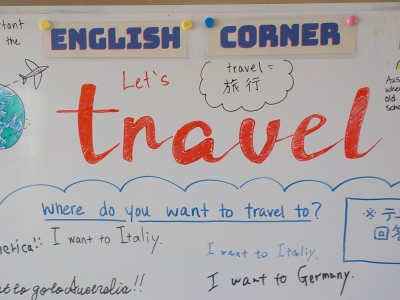 ENGLISH CORNER
the
Let's
travel =
旅行
travel
old
Where do you want to travel to?
I want to Italiy.
I want to Italiy.
I want to Germany.
to go to Australia!!